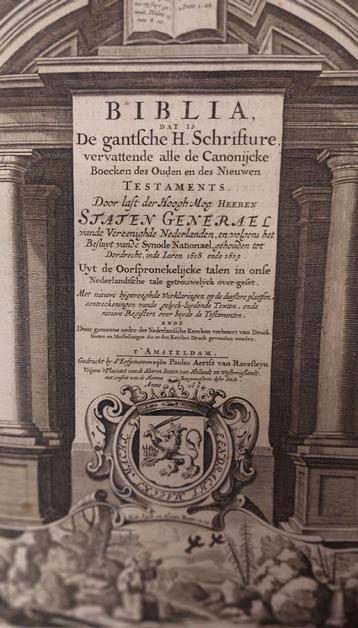 2 Petr. 1. 19.
BIBLIA,
DAT IS
De gantſche H. Schrifture.
vervattende alle de Canonijcke
Boecken des Ouden en des Nieuwen
TESTAMENTS.
Door laſt der Hoogh-Mog: HEEREN
STATEN GENERAEL
vande Vereenighde Nederlanden, en volgens het
Beſluyt vande Synode Nationael, gehouden tot
Dordrecht, inde Iaren 1618 ende 1619.
Uyt de Oorſpronckelijcke talen in onſe
Nederlandtſche tale getrouwelyck over-geſet.
Met nieuwe bygevoeghde Verklaringen op de duyſtere plaetſen,
aenteeckeningen vande gelyck-luydende Texten, ende
nieuwe Regiſters over beyde de Teſtamenten.
ENDE
Door gemeene ordre der Nederlandſche Kercken verbetert van Druck-
fauten en Misſtellingen die in den Eerſten Druck gevonden werden.
T'AMSTELDAM,
Gedruckt by d'Erfgenamen wijlen Paulus Aertſz van Raveſteyn
Anno